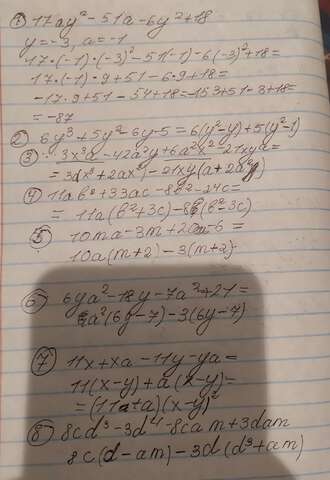 1) 17ay² - 51a - 6y² + 18
y = -3, a = -1
17·(-1)·(-3)² - 51(-1) - 6(-3)² + 18 =
17·(-1)·9 + 51 - 6·9 + 18 =
-17·9 + 51 - 54 + 18 = -153 + 51 - 3 + 18 =
= -87
2) 6y³ + 5y² - 6y - 5 = 6(y³-y) + 5(y²-1)
3) 3x³a - 42a²y + 6a²x² - 21xya =
4) 11ab² + 33ac - 8b² - 24c =
= 11a(b²+3c) - 8(b²-3c)
5) 10ma - 3m + 20a - 6 =
10a(m+2) - 3(m+2)
6) 6ya² - 18y - 7a² + 21 =
a²(6y-7) - 3(6y-7)
7) 11x + xa - 11y - ya =
11(x-y) + a(x-y) =
= (11+a)(x-y)²
8) 8cd³ - 3d⁴ - 8cam + 3dam
8c(d-am) - 3d(d³+am)